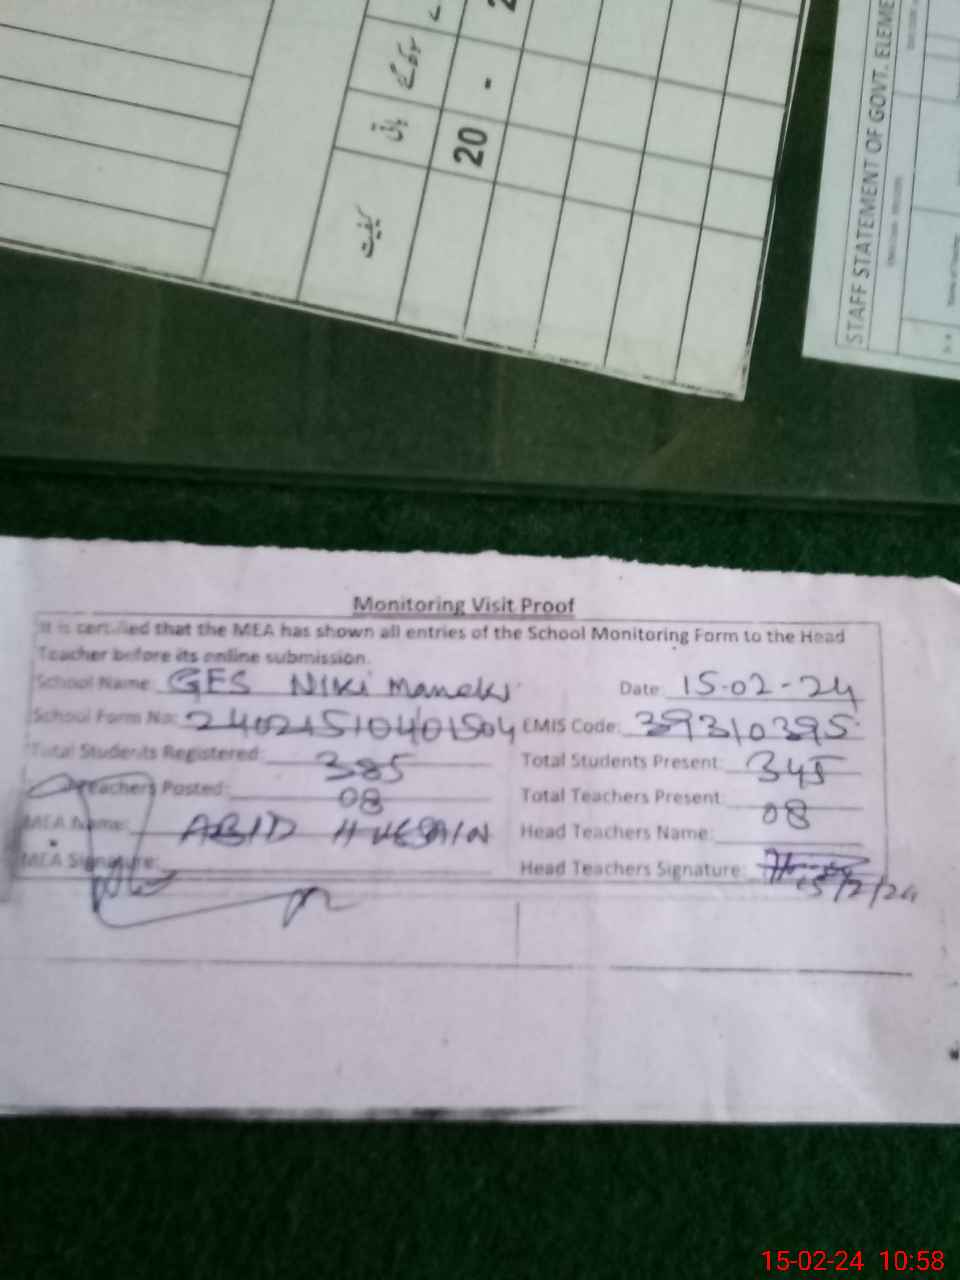 کیفیت
باقی
20
-
STAFF STATEMENT OF GOVT. ELEME
Monitoring Visit Proof
It is certified that the MEA has shown all entries of the School Monitoring Form to the Head
Teacher before its online submission.
School Name: GES Niki Maneks Date: 15-02-24
School Form No: EMIS Code: 39310395
Total Students Registered: 385 Total Students Present: 345
Teachers Posted: 08 Total Teachers Present: 08
MEA Name: ABID HUSSAIN Head Teachers Name:
MEA Signature: Head Teachers Signature:
15/2/24
15-02-24 10:58